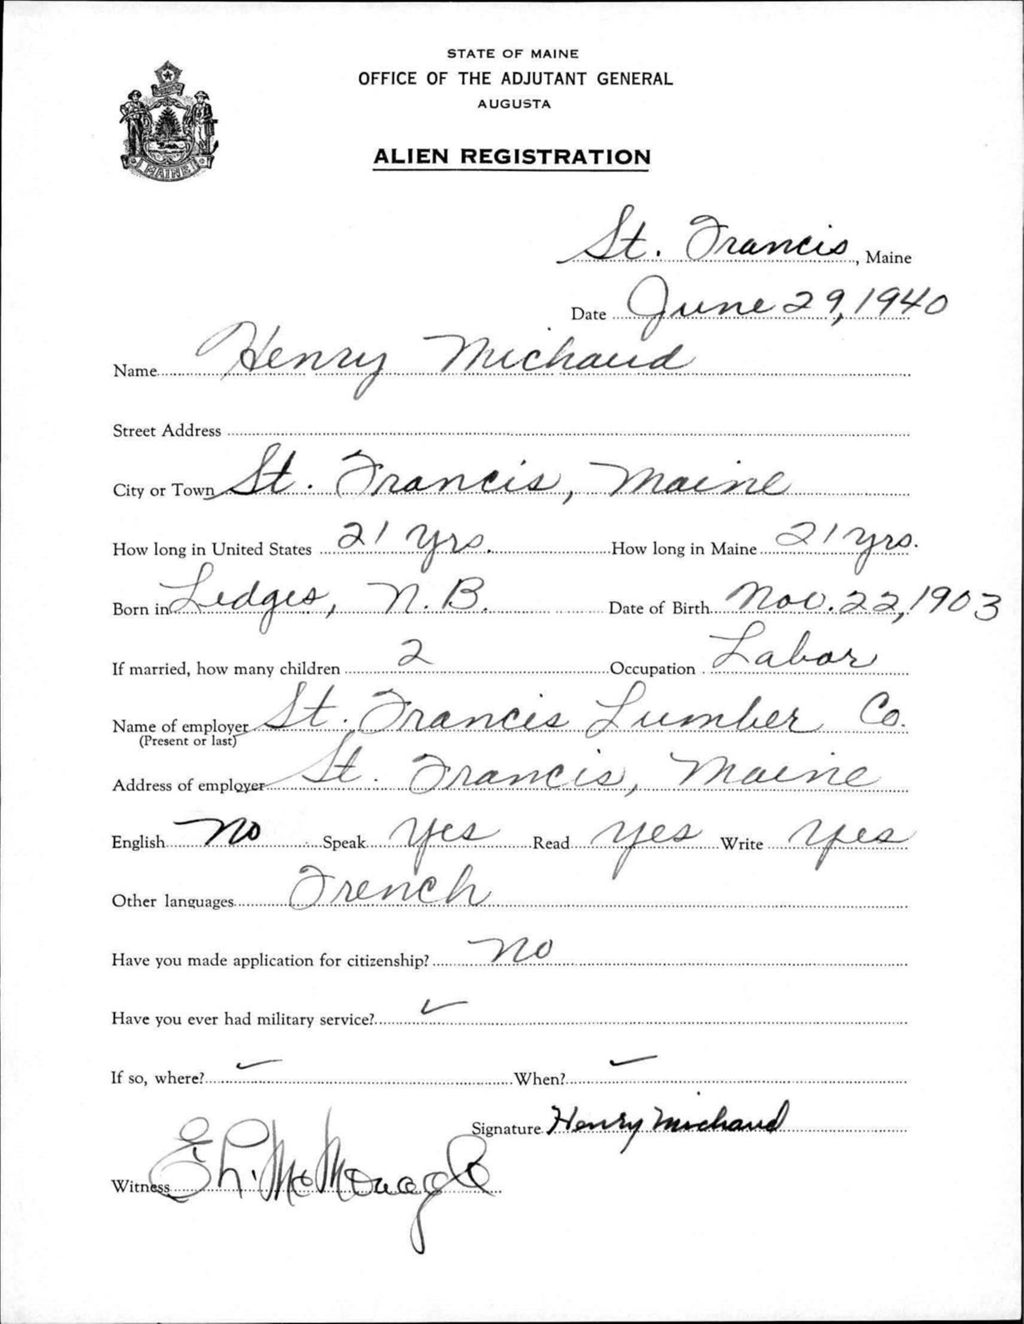 STATE OF MAINE
OFFICE OF THE ADJUTANT GENERAL
AUGUSTA
ALIEN REGISTRATION
MAINE
St. Francis, Maine
Date June 29, 1940
Name Henry Michaud
Street Address
City or Town St. Francis, Maine
How long in United States 21 yrs. How long in Maine 21 yrs.
Born in Ledges, N.B. Date of Birth Nov. 22, 1903
If married, how many children 2 Occupation Labor
Name of employer St. Francis Lumber Co.
(Present or last)
Address of employer St. Francis, Maine
English No Speak Yes Read Yes Write Yes
Other languages French
Have you made application for citizenship? No
Have you ever had military service? ✓
If so, where? ✓ When? ✓
Signature Henry Michaud
Witness McMonagle